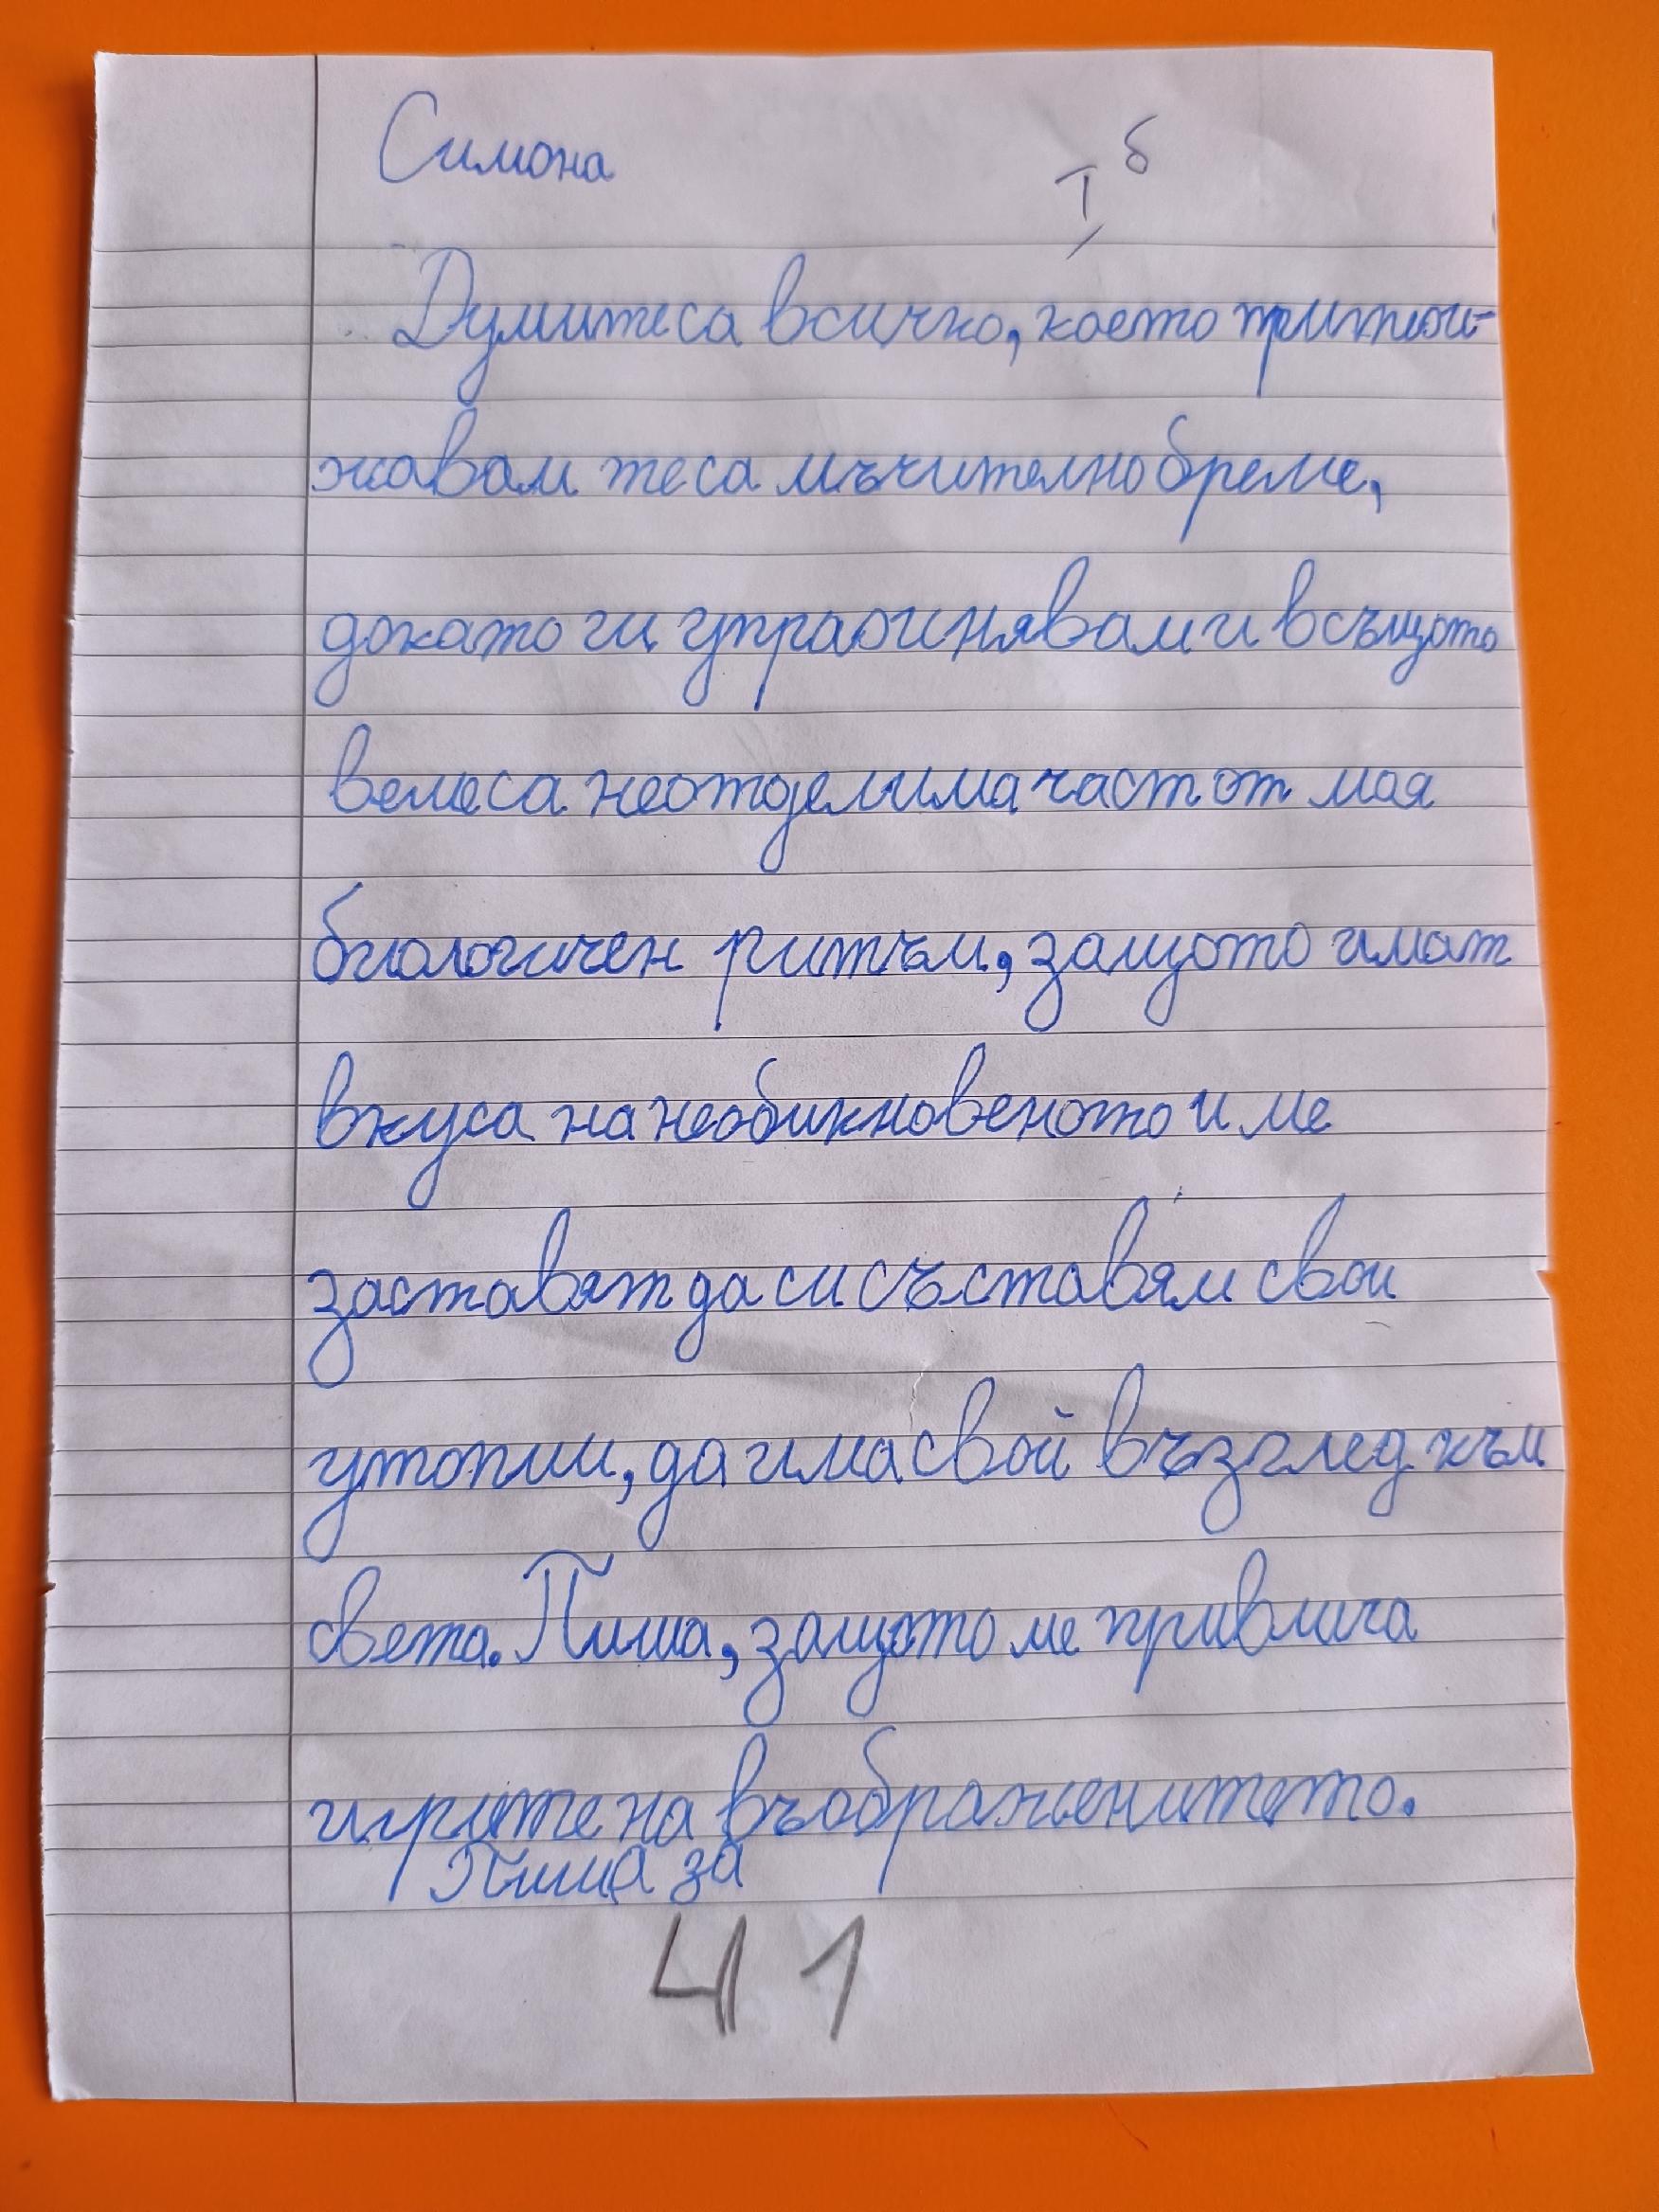 Симона I б
Думите са всичко, което притеои-
жавам те са мъчително бреме,
докато ги упраогнявам и в същото
веме са неотделима част от моя
биологичен ритъм, защото имат
вкуса на необикновеното и ме
заставят да си съставям свои
утопии, да има свой възглед към
света. Пиша, защото ме привлича
игрите на въображенитето.
Пиша за
41